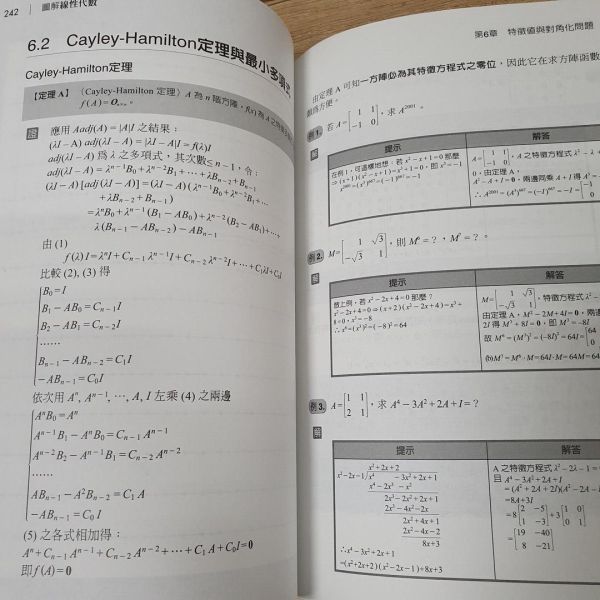 242 圖解線性代數
6.2 Cayley-Hamilton定理與最小多項式
Cayley-Hamilton定理
【定理 A】 (Cayley-Hamilton 定理) A 為 n 階方陣，f(λ) 為 A 之特徵
f(A) = O
證 應用 Aadj(A) = |A|I 之結果：
(λI − A) adj(λI − A) = |λI − A|I = f(λ)I
adj(λI − A) 爲 λ 之多項式，其次數 ≤ n − 1，令：
adj(λI − A) = λⁿ⁻¹B₀ + λⁿ⁻²B₁ + ⋯ + λBₙ₋₂ + Bₙ₋₁
(λI − A) [adj (λI − A)] = (λI − A)(λⁿ⁻¹B₀ + λⁿ⁻²B₁ + ⋯
+ λBₙ₋₂ + Bₙ₋₁)
= λⁿB₀ + λⁿ⁻¹(B₁ − AB₀) + λⁿ⁻²(B₂ − AB₁) + ⋯ +
λ(Bₙ₋₁ − ABₙ₋₂) − ABₙ₋₁
由 (1)
f(λ) I = λⁿI + Cₙ₋₁ λⁿ⁻¹I + Cₙ₋₂ λⁿ⁻²I + ⋯ + C₁λI + C₀I
比較 (2), (3) 得
B₀ = I
B₁ − AB₀ = Cₙ₋₁I
B₂ − AB₁ = Cₙ₋₂I
⋯⋯
Bₙ₋₁ − ABₙ₋₂ = C₁I
−ABₙ₋₁ = C₀I
依次用 Aⁿ, Aⁿ⁻¹, ⋯, A, I 左乘 (4) 之兩邊
AⁿB₀ = Aⁿ
Aⁿ⁻¹B₁ − AⁿB₀ = Cₙ₋₁Aⁿ⁻¹
Aⁿ⁻²B₂ − Aⁿ⁻¹B₁ = Cₙ₋₂Aⁿ⁻²
⋯⋯
ABₙ₋₁ − A²Bₙ₋₂ = C₁A
−ABₙ₋₁ = C₀I
(5) 之各式相加得：
Aⁿ + Cₙ₋₁Aⁿ⁻¹ + Cₙ₋₂Aⁿ⁻² + ⋯ + C₁A + C₀I = 0
即 f(A) = 0
第6章 特徵值與對角化問題
由定理 A 可知一方陣必為其特徵方程式之零位，因此它在求方陣函數
為方便。
例 1. 若 A = [1 1; −1 0]，求 A²⁰⁰¹。
解
提示 解答
在例 1，可這樣地想：若 x² − x + 1 = 0 那麼
⇒ (x + 1)(x² − x + 1) = x³ + 1 = 0，即 x³ = −1
x²⁰⁰¹ = (x³)⁶⁶⁷ = (−1)⁶⁶⁷ = −1
A = [1 1; −1 0]，A 之特徵方程式 λ² − λ +
0，由定理 A，
A² − A + I = 0，兩邊同乘 A + I 得 A³ = −
∴ A²⁰⁰¹ = (A³)⁶⁶⁷ = (−I)⁶⁶⁷ = −I = [−1 0
例 2. M = [1 √3; −√3 1]，則 M⁶ = ？，M⁷ = ？。
提示 解答
倣上例，若 x² − 2x + 4 = 0 那麼？
x² − 2x + 4 = 0 ⇒ (x + 2)(x² − 2x + 4) = x³ +
8 = 0，x³ = −8
∴ x⁶ = (x³)² = (−8)² = 64
M = [1 √3; −√3 1]，特徵方程式 λ² −
由定理 A，M² − 2M + 4I = 0，兩
2I 得 M³ + 8I = 0，即 M³ = −8I
故 M⁶ = (M³)² = (−8I)² = 64I = [64 0
(b)M⁷ = M⁶·M = 64I·M = 64M =
例 3. A = [1 1; 2 1]，求 A⁴ − 3A² + 2A + I = ？
解
提示 解答
x² + 2x + 2
x² − 2x − 1 ) x⁴ − 3x² + 2x + 1
x⁴ − 2x³ − x²
2x³ − 2x² + 2x + 1
2x³ − 4x² − 2x
2x² + 4x + 1
2x² − 4x − 2
8x + 3
∴ x⁴ − 3x² + 2x + 1
= (x² + 2x + 2)(x² − 2x − 1) + 8x + 3
A 之特徵方程式 λ² − 2λ − 1 =
且 A⁴ − 3A² + 2A + I
= (A² + 2A + 2I)(A² − 2A −
= 8A + 3I
= 8[2 −5; 1 −3] + 3[1 0; 0 1]
= [19 −40; 8 −21]